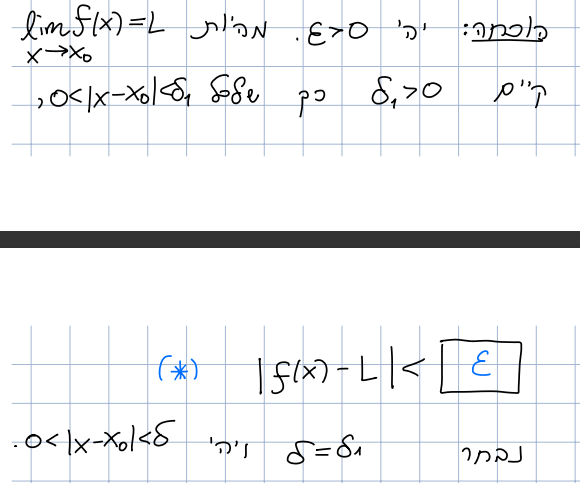 הוכחה: יהי ε>0. מהיות lim f(x)=L
x→x₀
קיים δ₁>0 כך שלכל 0<|x-x₀|<δ₁,
|f(x)-L|< ε (*)
נבחר δ=δ₁ ויהי 0<|x-x₀|<δ.